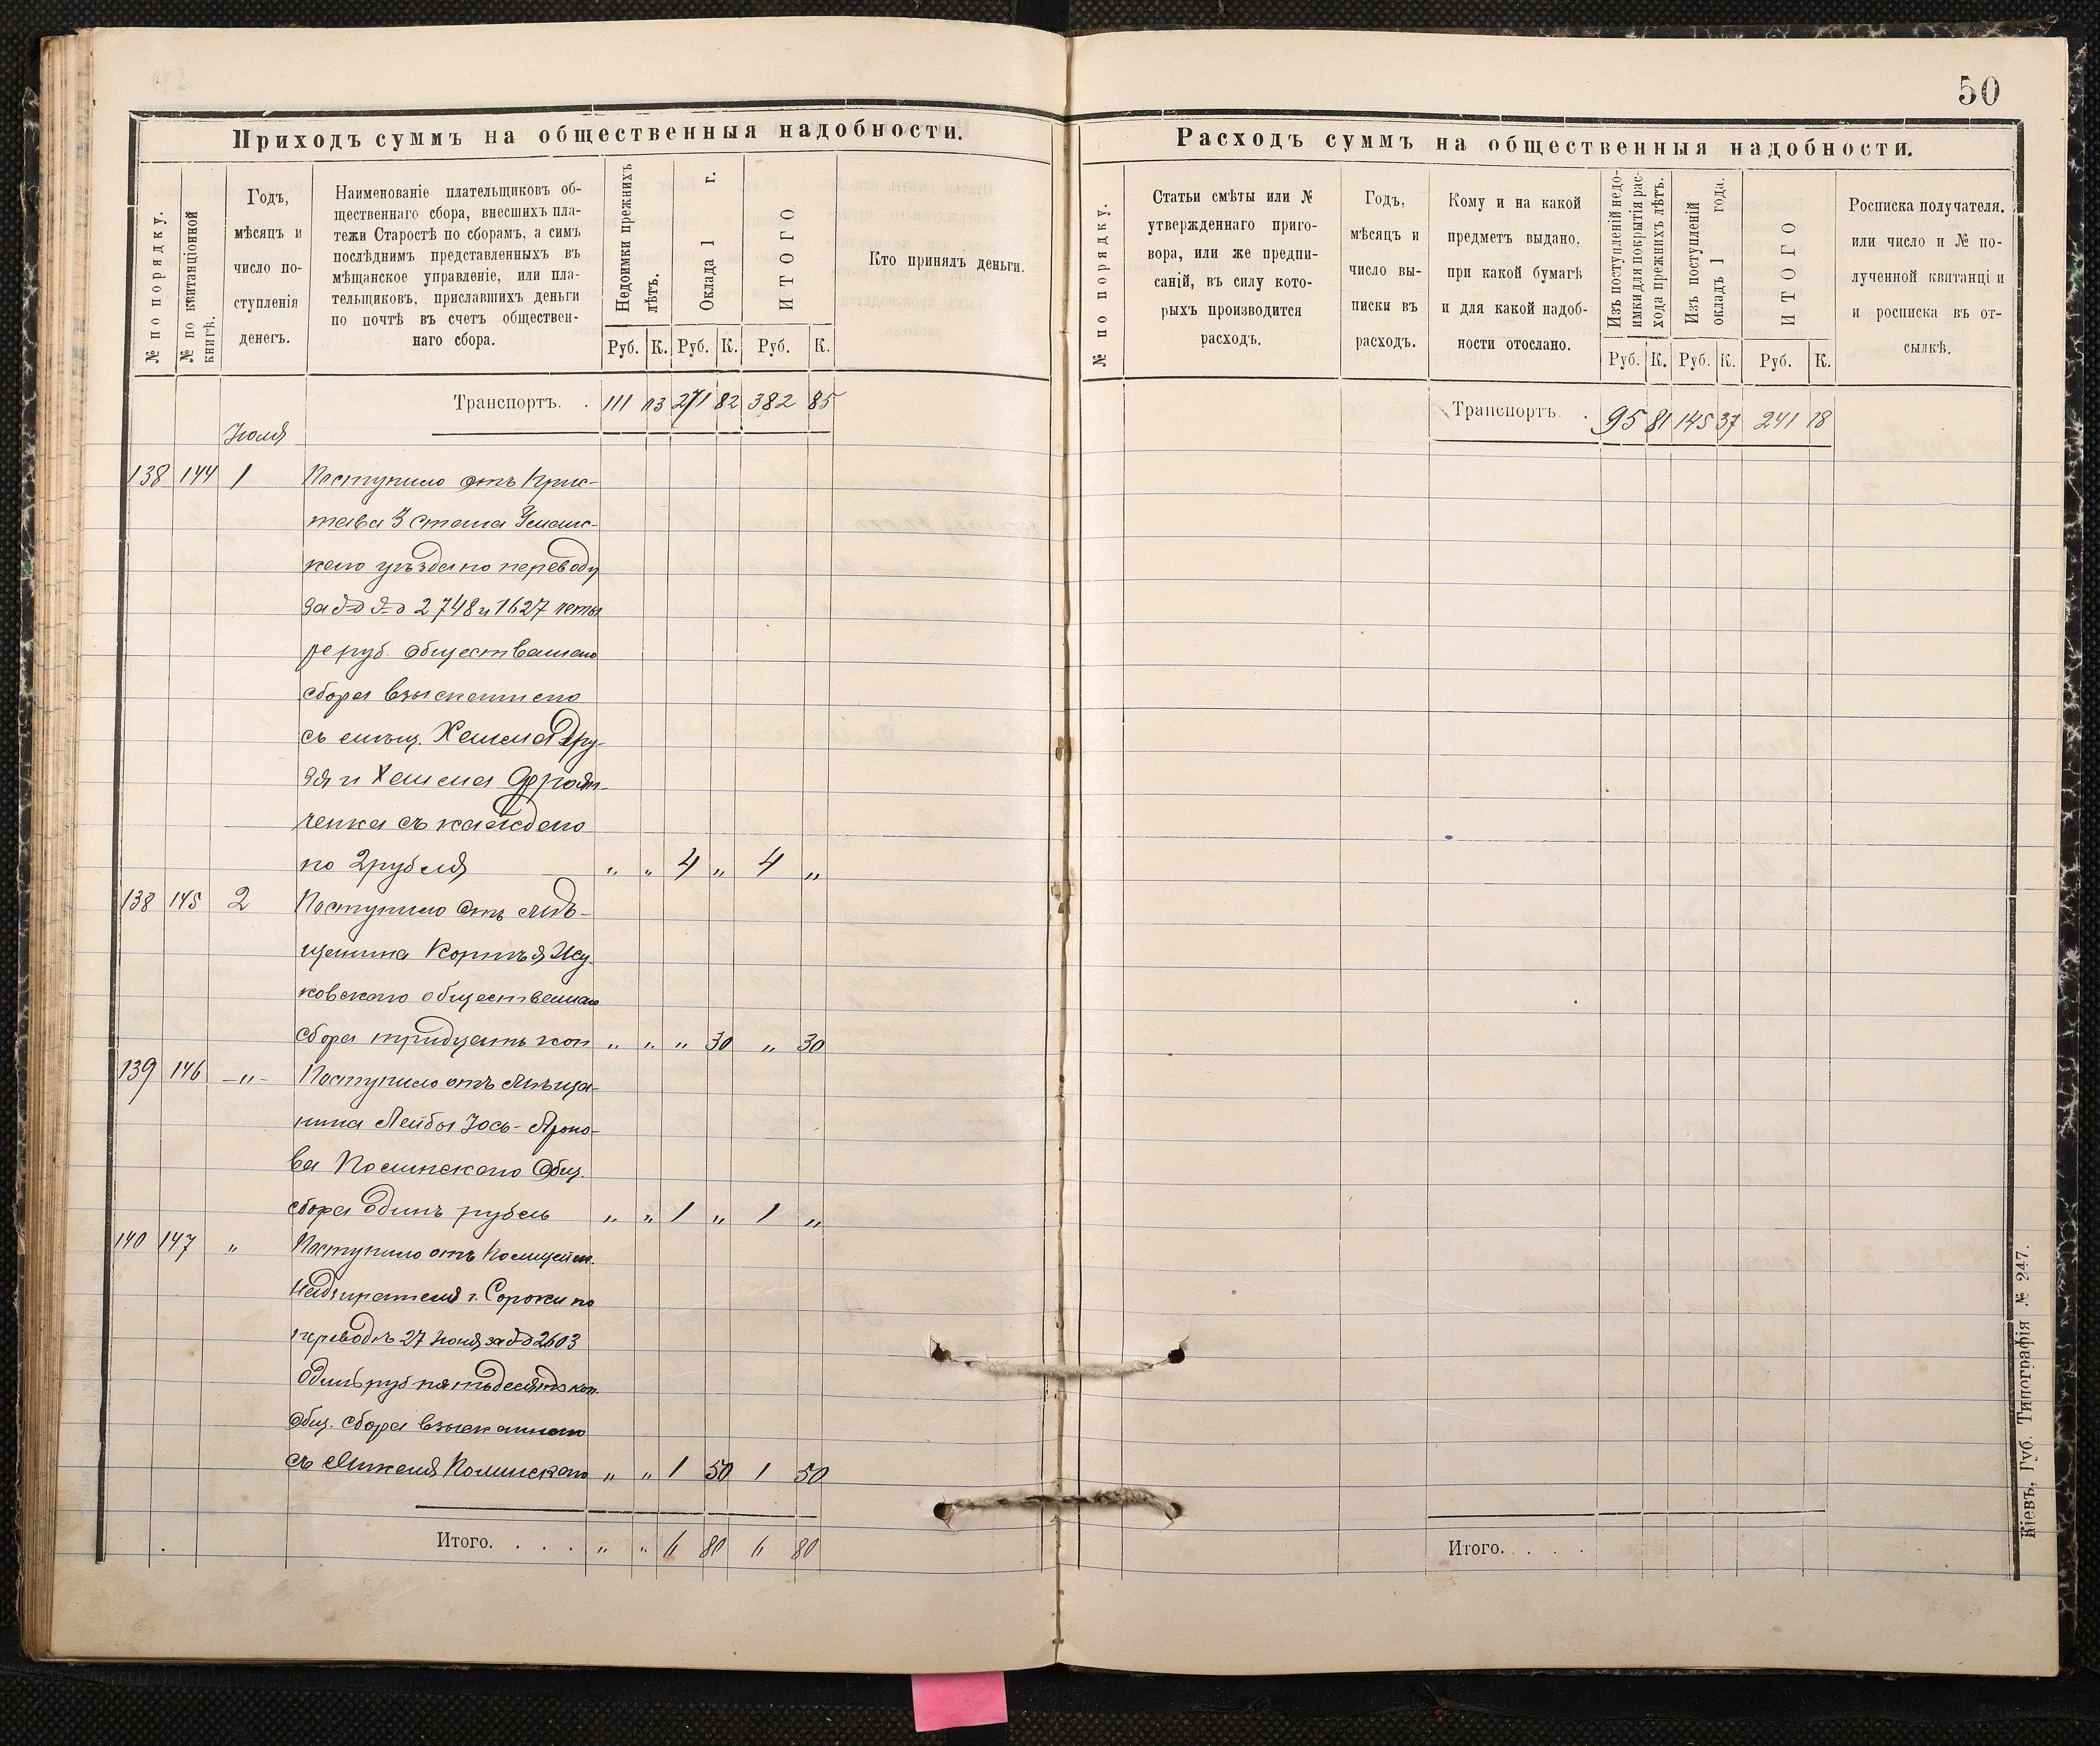 Приходъ суммъ на общественныя надобности.
№ по порядку.
№ по квитанціонной
книгѣ.
Годъ,
мѣсяцъ и
число по-
ступленія
денегъ.
Наименованіе плательщиковъ об-
щественнаго сбора, внесшихъ пла-
тежи Старостѣ по сборамъ, а симъ
послѣднимъ представленныхъ въ
мѣщанское управленіе, или пла-
тельщиковъ, приславшихъ деньги
по почтѣ въ счетъ обществен-
наго сбора.
Недоимки прежнихъ
лѣтъ.
Оклада 1 г.
ИТОГО
Кто принялъ деньги.
Руб. К. Руб. К. Руб. К.
Транспортъ. . 111 03 271 82 382 85
Іюля
138 144 1 Поступило отъ Прис-
тава 3 стана Уманс-
каго уѣзда по переводу
за 2748 и 1627 четы
ре руб. общественнаго
сбора взысканнаго
съ мѣщ. Хаима Дру-
зя и Хаима
ченка съ каждаго
по 2 рубля " " 4 " 4 "
138 145 2 Поступило отъ мѣ-
щанина Корнѣя Жу-
ковскаго общественнаго
сбора тридцать коп " " " 30 " 30
139 146 -"- Поступило отъ мѣща-
нина Лейбы Іось-Ароно-
ва Полинскаго общ.
сбора одинъ рубль " " 1 " 1 "
140 147 " Поступило отъ Полицейск.
Надзирателя г. Сороки по
переводъ 27 Іюня за 2603
Одинъ руб пятьдесятъ коп.
общ. сбора взысканнаго
съ Микеля Полинскаго " " 1 50 1 50
Итого. . . . " " 6 80 6 80
50
Расходъ суммъ на общественныя надобности.
№ по порядку.
Статьи смѣты или №
утвержденнаго приго-
вора, или же предпи-
саній, въ силу кото-
рыхъ производится
расходъ.
Годъ,
мѣсяцъ и
число вы-
писки въ
расходъ.
Кому и на какой
предметъ выдано,
при какой бумагѣ
и для какой надоб-
ности отослано.
Изъ поступленій недо-
имки для покрытія рас-
хода прежнихъ лѣтъ.
Изъ поступленій
окладъ 1 года.
ИТОГО
Росписка получателя.
или число и № по-
лученной квитанціи
и росписка въ от-
сылкѣ.
Руб. К. Руб. К. Руб. К.
Транспортъ . 95 81 145 37 241 18
Итого. . . .
Кіевъ, Губ. Типографія № 247.